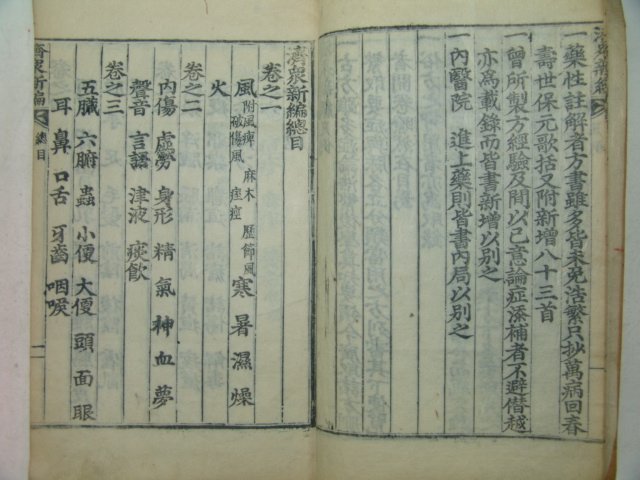 一藥性註解者方書雖多皆未免浩繁只抄萬病回春
壽世保元歌括又附新增八十三首
一曾所製方經驗及間以己意論症添補者不避僭越
亦爲載錄而皆書新增以別之
一內醫院進上藥則皆書內局以別之
濟衆新編總目
卷之一
風 附風痺 麻木 歷節風 破傷風 痓痙 寒 暑 濕 燥
火
卷之二
內傷 虛勞 身形 精 氣 神 血 夢
聲音 言語 津液 痰飮
卷之三
五臟 六腑 蟲 小便 大便 頭 面 眼
耳 鼻 口舌 牙齒 咽喉
濟衆新編 總目 一